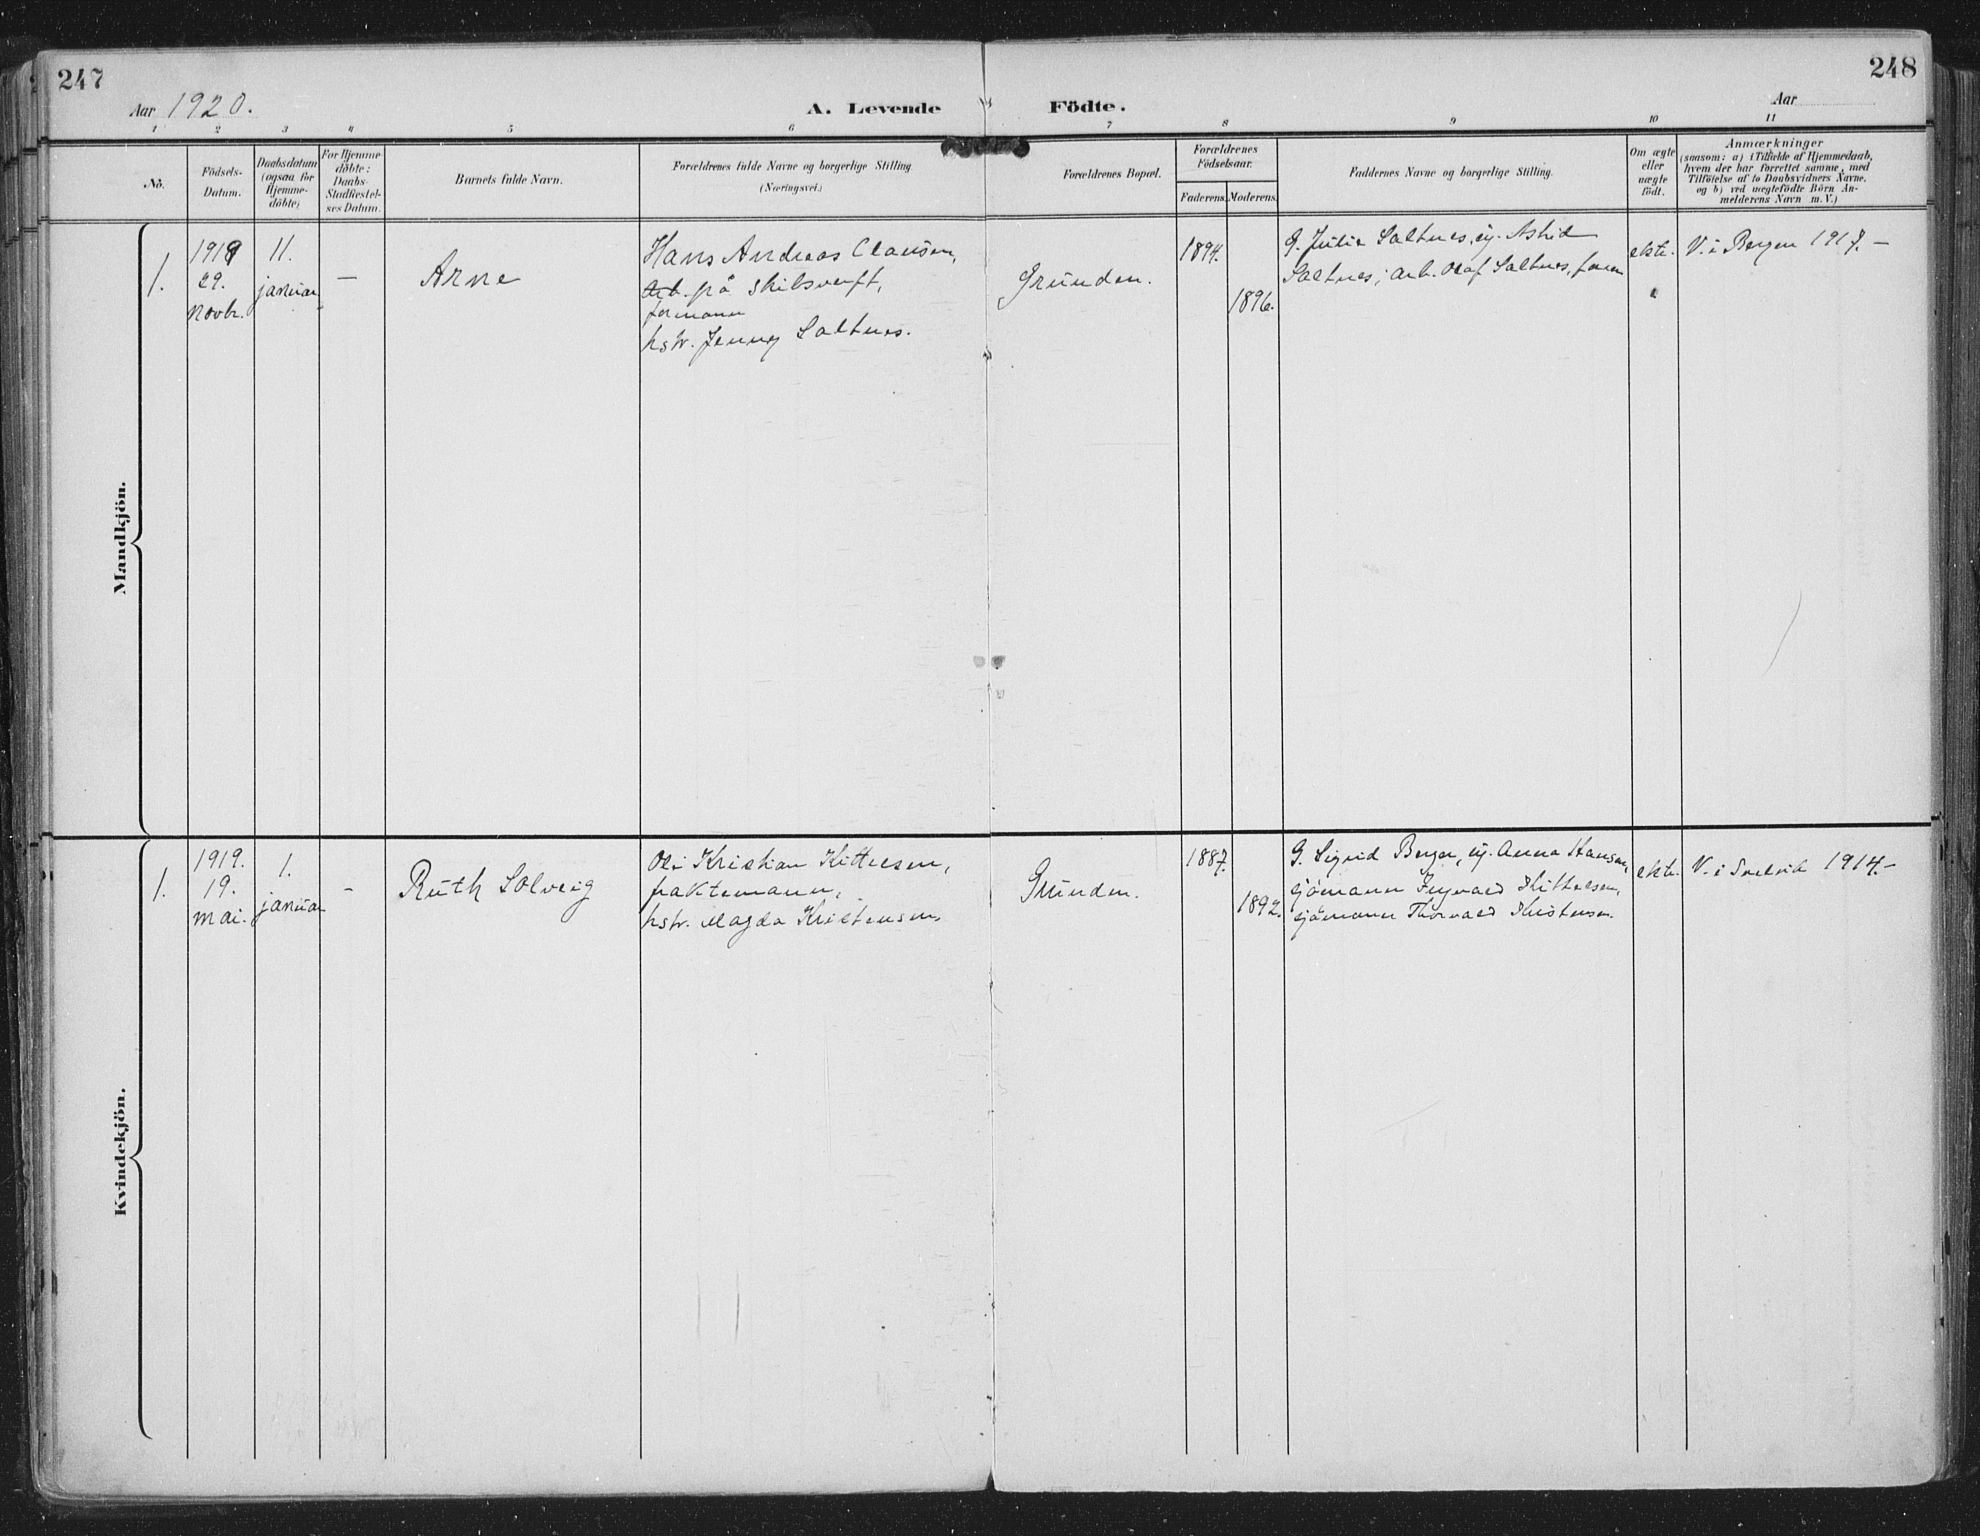 247
248
Aar 1920.
A. Levende Födte.
Aar
1 2 3 4 5 6 7 8 9 10 11
No.
Födsels-
Datum.
Daabsdatum
(ogsaa for
Hjemme-
döbte)
For Hjemme-
döbte:
Daabs-
Stadfæstel-
ses Datum.
Barnets fulde Navn.
Forældrenes fulde Navne og borgerlige Stilling
(Næringsvei.)
Forældrenes Bopæl.
Forældrenes
Födselsaar.
Faderens. Moderens.
Faddernes Navne og borgerlige Stilling.
Om ægte
eller
uægte
födt.
Anmærkninger
(saasom: a) i Tilfælde af Hjemmedaab,
hvem der har forrettet samme, med
Tilföielse af to Daabsvidners Navne.
og b) ved uægtefödte Börn An-
melderens Navn m. V.)
Mandkjön.
1.
1919
29.
Novbr.
11.
januar
—
Arne
Hans Andreas Clausen,
Arb. på skibsverft,
formann
hstr. Jenny Saltnes.
Grunden.
1894.
1896.
G. Julie Saltnes, ug. Astrid
Saltnes, arb. Olaf Saltnes, faren
ekte.
V. i Bergen 1917. —
Kvindekjön.
1.
1919.
19.
mai.
1.
januar
–
Ruth Solveig
Ole Kristian Kittelsen,
fraktemann,
hstr. Magda Kristensen,
Grunden.
1887.
1892.
G. Sigrid Berger, ug. Anna Hansen,
sjömann Ingvald Kittelsen,
sjömann Thorvald Kristensen.
ekte.
V. i Svelvik 1914. –